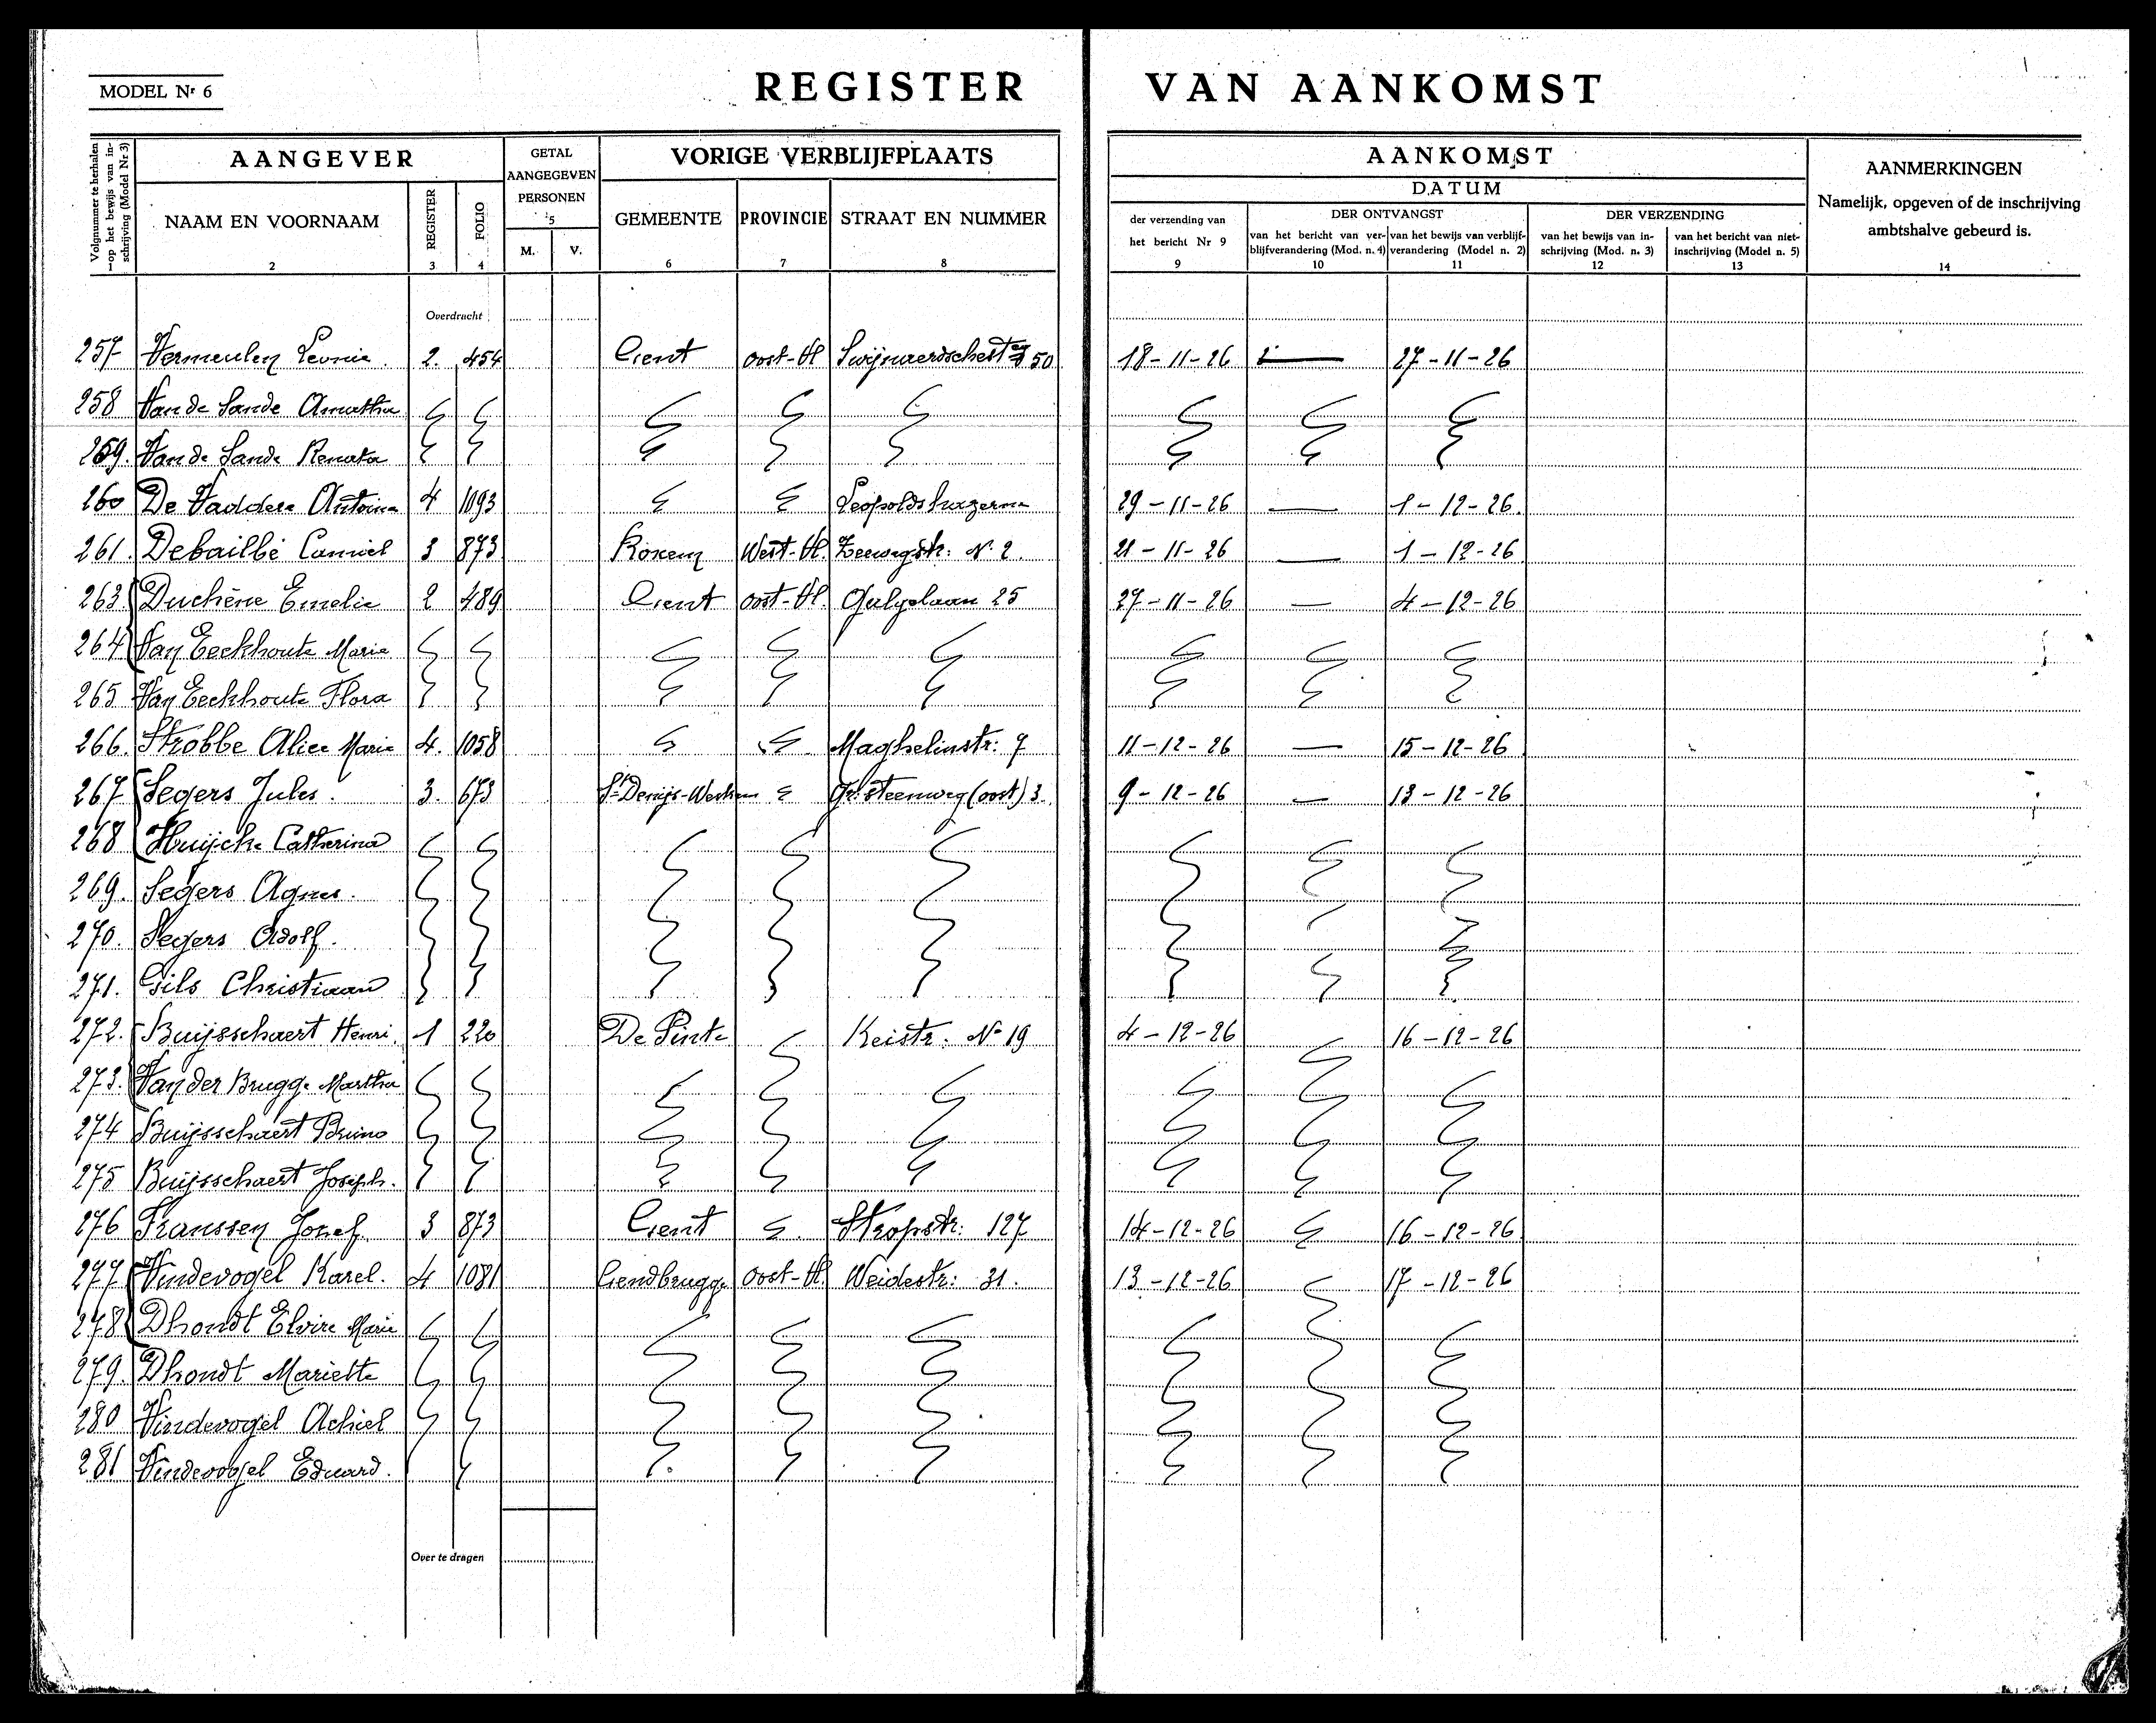 MODEL Nr 6
REGISTER VAN AANKOMST
Volgnummer te herhalen op het bewijs van inschrijving (Model Nr 3) 1
AANGEVER
NAAM EN VOORNAAM 2
REGISTER 3
FOLIO 4
GETAL AANGEGEVEN PERSONEN 5
M. V.
VORIGE VERBLIJFPLAATS
GEMEENTE 6
PROVINCIE 7
STRAAT EN NUMMER 8
AANKOMST
DATUM
der verzending van het bericht Nr 9
9
DER ONTVANGST
van het bericht van verblijfverandering (Mod. n. 4) 10
van het bewijs van verblijfverandering (Model n. 2) 11
DER VERZENDING
van het bewijs van inschrijving (Mod. n. 3) 12
van het bericht van niet-inschrijving (Model n. 5) 13
AANMERKINGEN
Namelijk, opgeven of de inschrijving ambtshalve gebeurd is.
14
Overdracht
257 Vermeulen Leonie. 2. 454 Gent Oost-Vl 50 18-11-26 — 27-11-26
258 Van de Sande Amatha
259. Van de Sande Renata
260 De Vaddere Antoine 4 1093 Leopoldskazerne 29-11-26 — 1-12-26.
261. Debailbé Camiel 3 873 Roxem West-Vl. Zeewegstr: N° 2. 21-11-26 — 1-12-26
263. Duchêne Emelie 2 489 Gent Oost-Vl. 25 27-11-26 — 4-12-26
264 Van Eeckhoute Marie
265 Van Eeckhoute Flora
266. Strobbe Alice Marie 4. 1058 Maghelinstr: 7 11-12-26 — 15-12-26
267 Segers Jules. 3. 673 St Denijs-Westrem Gr. steenweg (oost) 3. 9-12-26 — 13-12-26
268 Huijcke Catherina
269. Segers Agnes.
270. Segers Adolf.
271. Gils Christiaan
272. Buijsschaert Henri. 1 220 De Pinte Keistr. N° 19 4-12-26 16-12-26
273. Van der Brugge Martha
274 Buijsschaert Bruno
275 Buijsschaert Joseph.
276 Franssen Jozef. 3 873 Gent Stropstr: 127 14-12-26 16-12-26
277 Vindevogel Karel. 4 1081 Gendbrugge Oost-Vl. Weidestr: 31. 13-12-26 17-12-26
278 Dhondt Elvire Marie
279. Dhondt Mariette
280 Vindevogel Achiel
281 Vindevogel Eduard.
Over te dragen